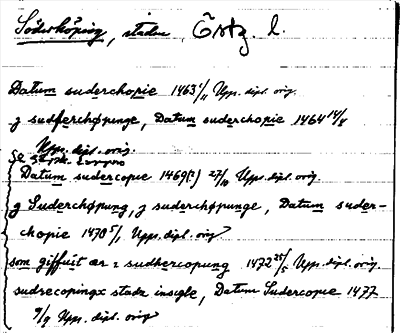 Söderköping, staden Östg. l.
Datum suderchopie 1463 1/11 Upps. dipl. orig.
j sudherchøpunge, Datum suderchopie 1464 14/8
Upps. dipl. orig.
Datum sudercopie 1469(?) 27/10 Upps. dipl. orig.
j Suderchøpung, j suderchøpunge, Datum suder-
chopie 1470 5/1 Upps. dipl. orig.
som giffuit ær i sudhercopung 1472 25/5 Upps. dipl. orig.
sudrecopingx stadz insigle, Datum Sudercopie 1477
9/9 Upps. dipl. orig.